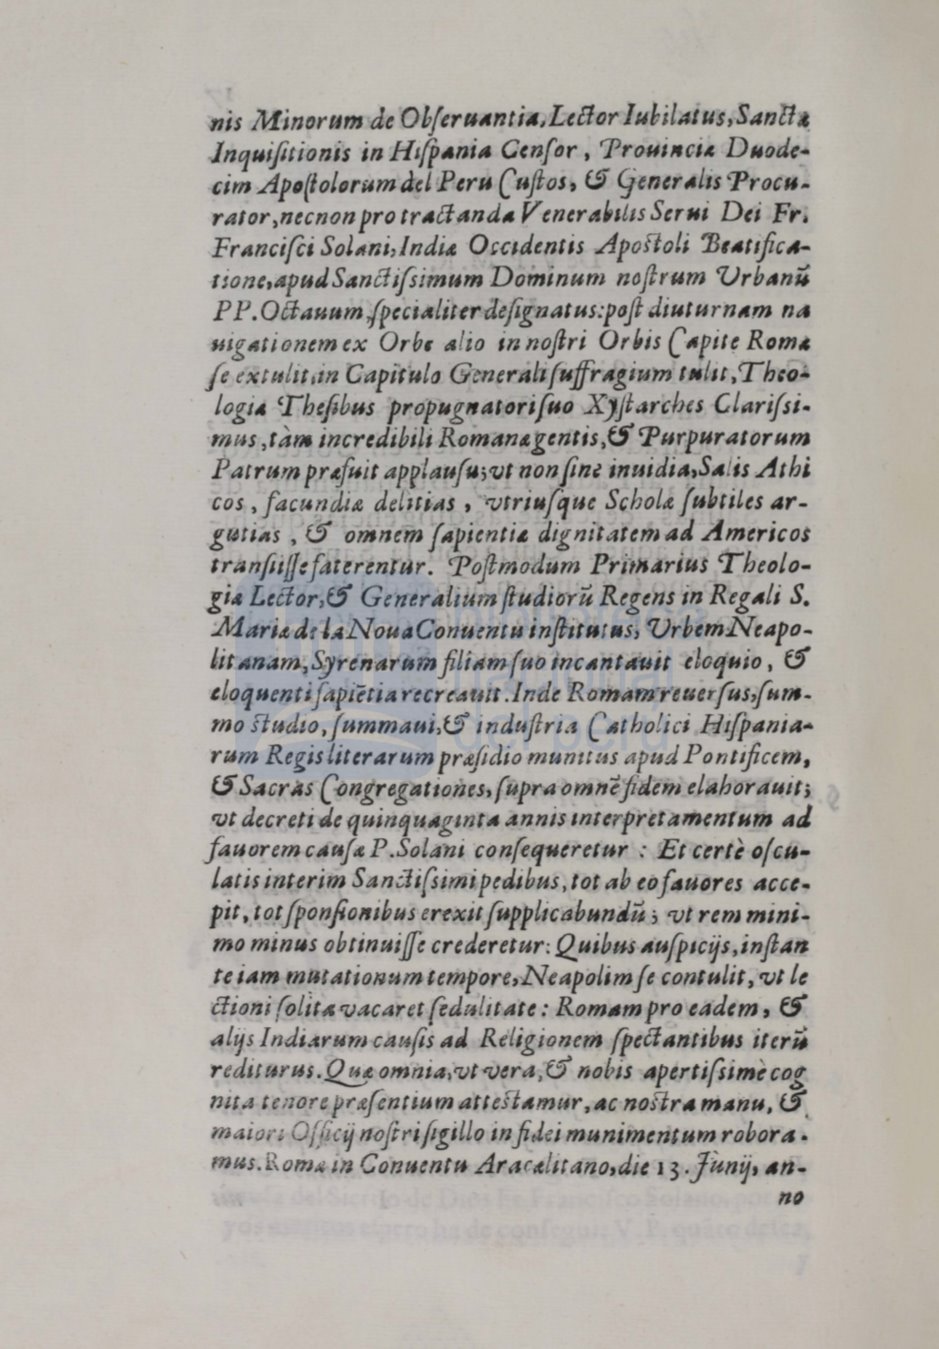 nis Minorum de Obſeruantia, Lector Iubilatus, Sanctæ
Inquiſitionis in Hiſpania Cenſor, Prouinciæ Duode-
cim Apoſtolorum del Peru Cuſtos, & Generalis Procu-
rator, necnon pro tractanda Venerabilis Serui Dei Fr.
Franciſci Solani, Indiæ Occidentis Apoſtoli Beatifica-
tione, apud Sanctiſsimum Dominum noſtrum Urbanũ
PP. Octauum, ſpecialiter deſignatus: poſt diuturnam na
uigationem ex Orbe alio in noſtri Orbis Capite Romæ
ſe extulit, in Capitulo Generali ſuffragium tulit, Theo-
logiæ Theſibus propugnatori ſuo Xyſtarches Clariſsi-
mus, tàm incredibili Romanæ gentis, & Purpuratorum
Patrum præfuit applauſu; vt non ſine inuidia, Salis Athi
cos, facundiæ delitias, vtriuſque Scholæ ſubtiles ar-
gutias, & omnem ſapientiæ dignitatem ad Americos
tranſiiſſe faterentur. Poſtmodum Primarius Theolo-
giæ Lector, & Generalium ſtudiorũ Regens in Regali S.
Mariæ de la Noua Conuentu inſtitutus, Urbem Neapo-
litanam, Syrenarum filiam ſuo incantauit eloquio, &
eloquenti ſapiẽtia recreauit. Inde Romam reuerſus, ſum-
mo ſtudio, ſumma vi, & induſtria Catholici Hiſpania-
rum Regis literarum præſidio munitus apud Pontificem,
& Sacras Congregationes, ſupra omnẽ fidem elaborauit;
vt decreti de quinquaginta annis interpretamentum ad
fauorem cauſæ P. Solani conſequeretur : Et certè oſcu-
latis interim Sanctiſsimi pedibus, tot ab eo fauores acce-
pit, tot ſponſionibus erexit ſupplicabundũ; vt rem mini-
mo minus obtinuiſſe crederetur: Quibus auſpicijs, inſtan
te iam mutationum tempore, Neapolim ſe contulit, vt le
ctioni ſolita vacaret ſedulitate: Romam pro eadem, &
alijs Indiarum cauſis ad Religionem ſpectantibus iterũ
rediturus. Quæ omnia, vt vera, & nobis apertiſsimè cog
nita tenore præſentium atteſtamur, ac noſtra manu, &
maiori Officij noſtri ſigillo in fidei munimentum robora-
mus. Romæ in Conuentu Aracælitano, die 13. Junij, an-
no